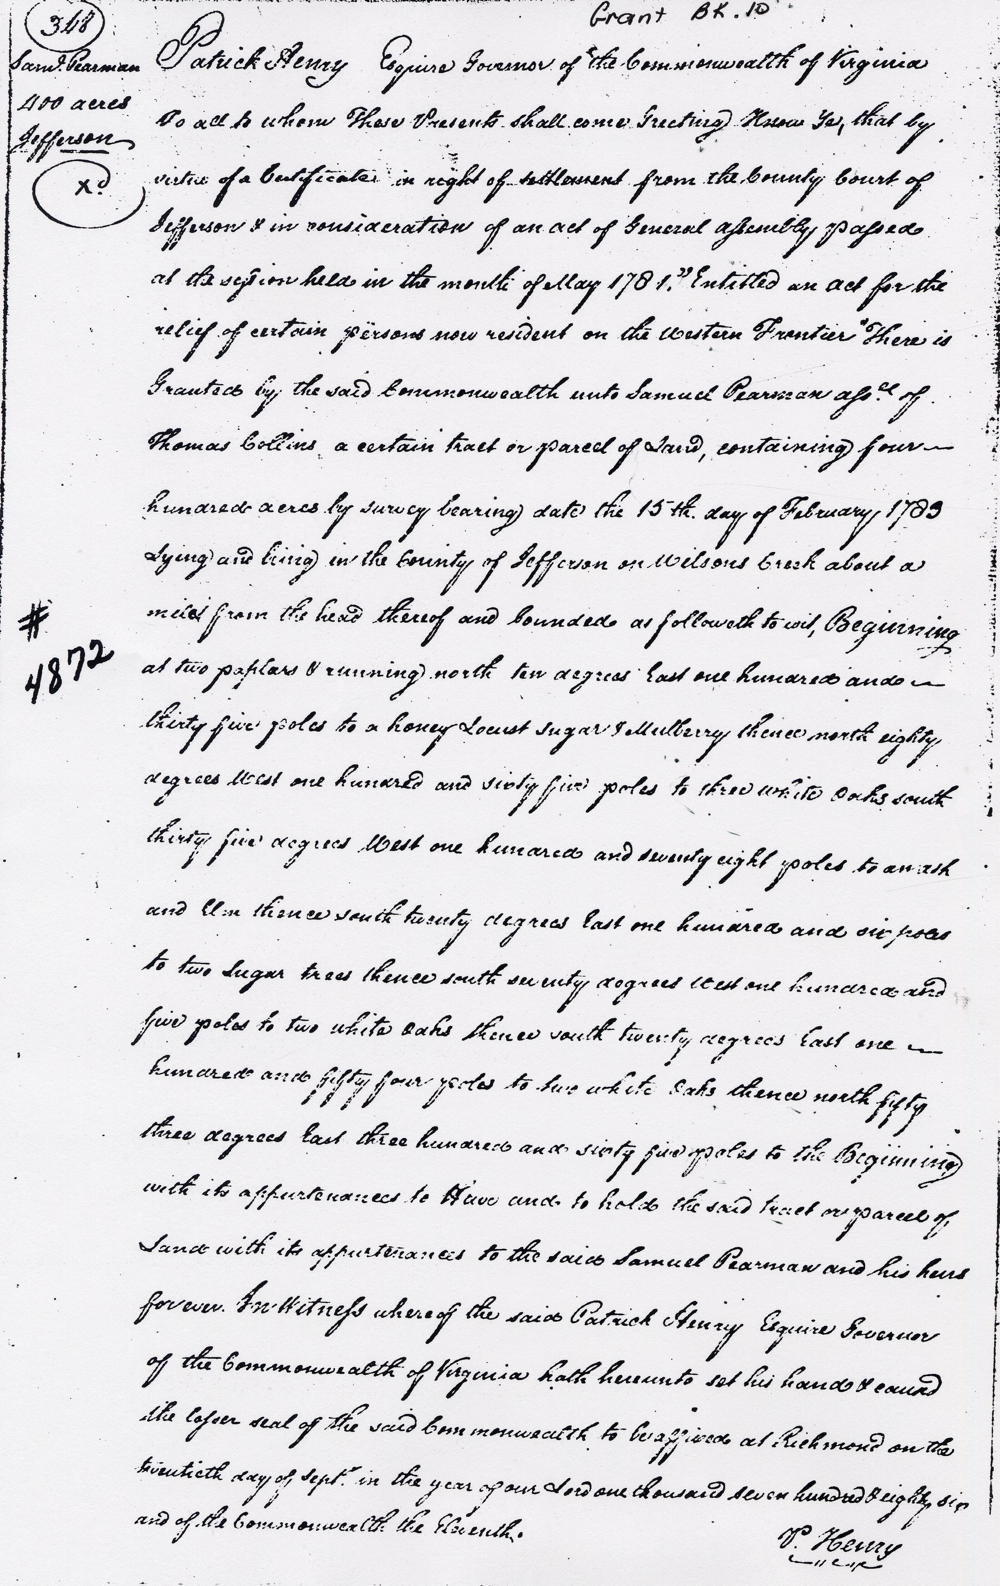 Grant BK. 10
348
Saml. Pearman
400 acres
Jefferson
Xd
Patrick Henry Esquire Governor of the Commonwealth of Virginia
To all to whom These Presents shall come Greeting Know Ye, that by
virtue of a Certificate in right of settlement from the County Court of
Jefferson & in consideration of an act of General assembly passed
at the session held in the month of May 1781." Entitled an act for the
relief of certain persons now resident on the Western Frontier" There is
Granted by the said Commonwealth unto Samuel Pearman asse. of
Thomas Collins a certain tract or parcel of Land, containing four
hundred acres by survey bearing date the 15th. day of February 1783
Lying and being in the County of Jefferson on Wilsons Creek about a
mile from the head thereof and bounded as followeth to wit, Beginning
#
4872
at two poplars & running north ten degrees East one hundred and
thirty five poles to a honey Locust sugar & Mulberry thence north eighty
degrees West one hundred and sixty five poles to three white Oaks south
thirty five degrees West one hundred and seventy eight poles to an ash
and Elm thence south twenty degrees East one hundred and six poles
to two Sugar trees thence south seventy degrees West one hundred and
five poles to two white Oaks thence south twenty degrees East one
hundred and fifty four poles to two white Oaks thence north fifty
three degrees East three hundred and sixty five poles to the Beginning
with its appurtenances to Have and to hold the said tract or parcel of
Land with its appurtenances to the said Samuel Pearman and his heirs
forever. In Witness whereof the said Patrick Henry Esquire Governor
of the Commonwealth of Virginia hath hereunto set his hand & caused
the lesser seal of the said Commonwealth to be affixed at Richmond on the
twentieth day of Sept. in the year of our Lord one thousand seven hundred & eighty six
and of the Commonwealth the Eleventh.
P. Henry